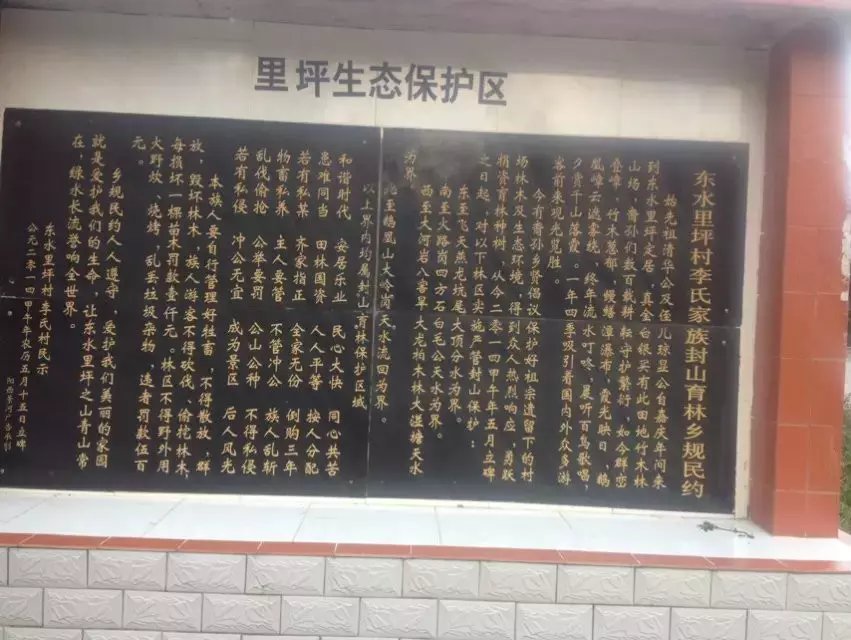 里坪生态保护区
东水里坪村李氏家族封山育林乡规民约
始先祖清华公及侄儿琼显公自嘉庆年间来
到东水里坪定居，真金白银买有此田地竹木林
山场，裔孙们数百载耕耘守护繁衍，如今群峦
叠峰，竹木葱郁，鳗鱔潭瀑布，霞光映日，鹤
凰峰云遮雾绕，终年流水叮咚，晨听百鸟歌唱，
夕赏千山落霞。一年四季吸引着国内外众多游
客前来观光览胜。
今有裔孙乡贤倡议保护好祖宗遗留下的村
场林木及生态环境，得到众人热烈响应，勇跃
捐资育林种树，从今二零一四甲午年五月立碑
之日起，对以下林区实施严管封山保护：
东至飞天燕龙坑尾大顶分水为界。
南至大路岗四方石白毛公天水为界。
西至大河岩八窖旱大龙柏木林大湴塘天水
为界。
北至鹤凰山大岭岗天水流回为界。
以上界内均属封山育林保护区域
和谐时代 安居乐业 民心大快 同心共苦
患难同当 田林国资 人人平等 按人分配
若有私案 齐家指正 全家无份 倒购三年
物畜私养 主人要管 不管冲公 族人乱斩
乱伐偷抢 公举要罚 公山公种 不得私侵
若有私侵 冲公无宜 成为景区 后人风光
本族人要自行管理好牲畜，不得散放，群
放，毁坏林木，族人游客不得砍伐、偷挖林木，
每损坏一棵苗木罚款壹仟元。林区不得野外用
火野炊、烧烤，乱丢垃圾杂物，违者罚款伍百
元。
乡规民约人人遵守，爱护我们美丽的家园
就是爱护我们的生命，让东水里坪之山青山常
在，绿水长流誉响全世界。
东水里坪村李氏村民示
公元二零一四甲午年农历五月十五日立碑